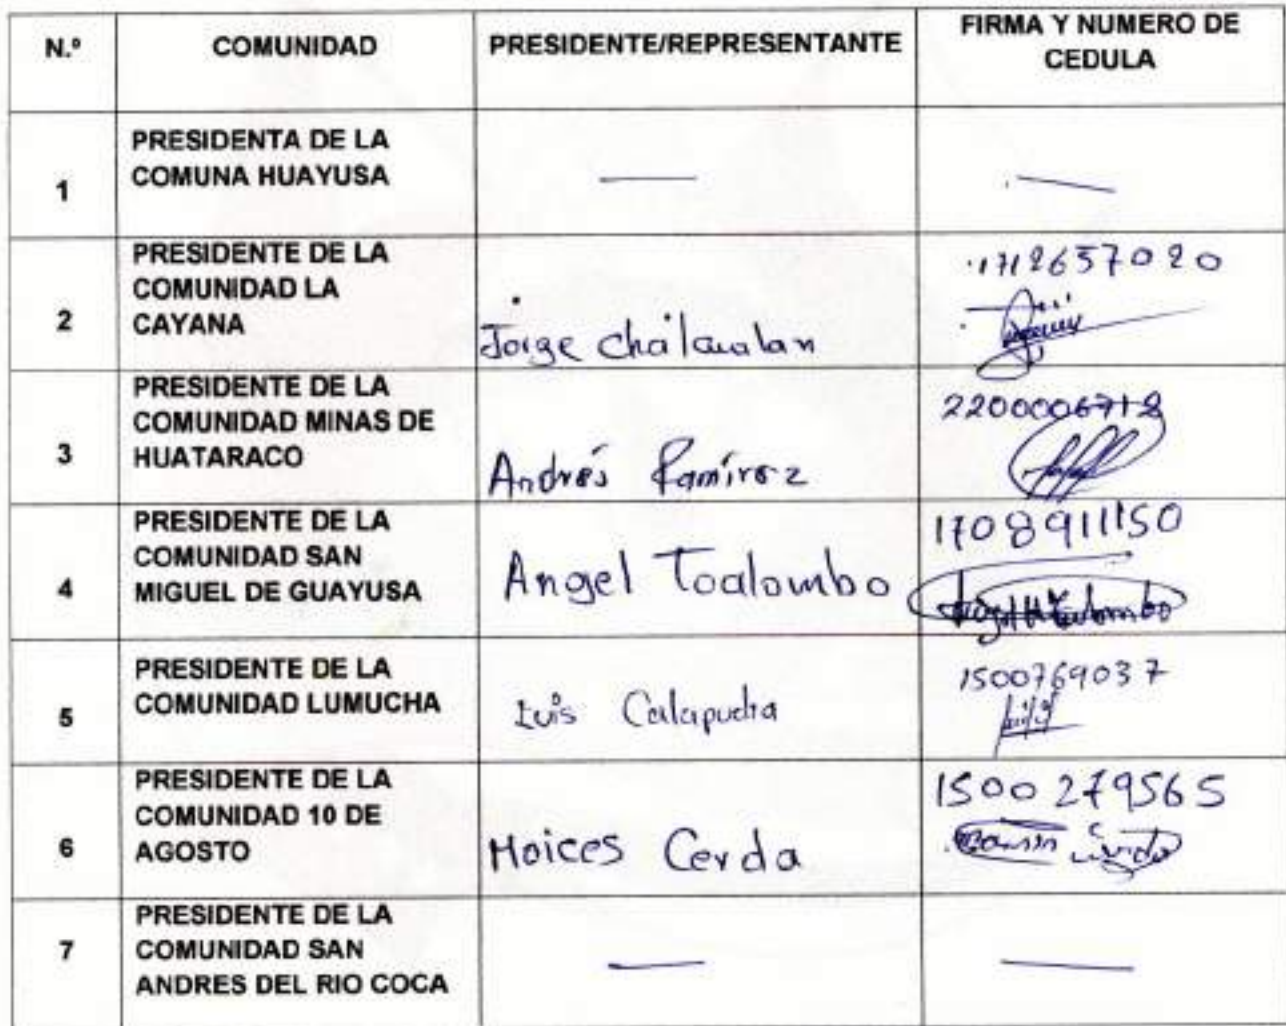 N.º COMUNIDAD PRESIDENTE/REPRESENTANTE FIRMA Y NUMERO DE
CEDULA
PRESIDENTA DE LA
COMUNA HUAYUSA
1 — —
PRESIDENTE DE LA
COMUNIDAD LA
CAYANA
2
Jorge
1712657020
PRESIDENTE DE LA
COMUNIDAD MINAS DE
HUATARACO
3
Andrés Ramírez
2200006718
PRESIDENTE DE LA
COMUNIDAD SAN
MIGUEL DE GUAYUSA
4
Angel Toalombo
1708911150
PRESIDENTE DE LA
COMUNIDAD LUMUCHA
5
Luis
1500769037
PRESIDENTE DE LA
COMUNIDAD 10 DE
AGOSTO
6
Moices Cerda
1500279565
PRESIDENTE DE LA
COMUNIDAD SAN
ANDRES DEL RIO COCA
7 — —